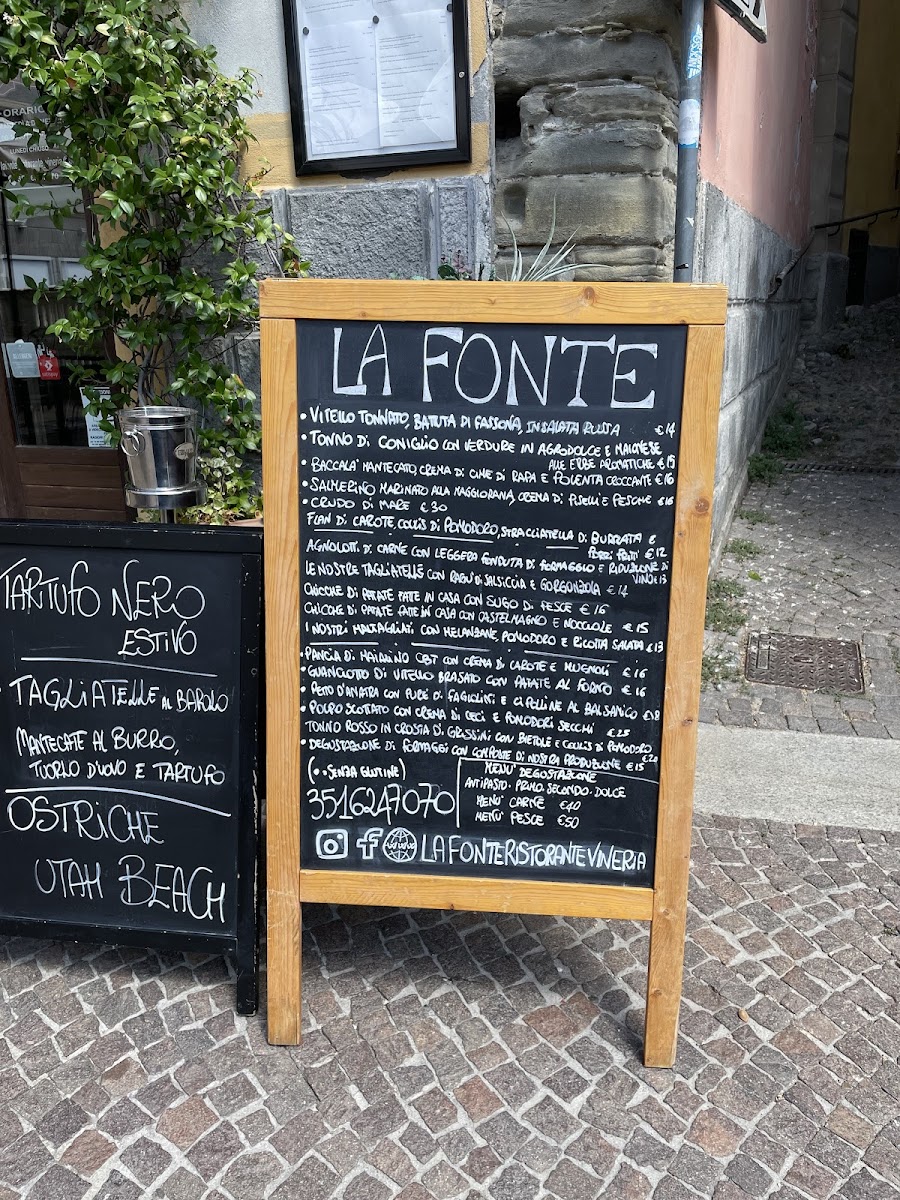 ORARIO
LUNEDÌ CHIUSO
LA FONTE
• VITELLO TONNATO, BATTUTA DI FASSONA, INSALATA RUSSA €14
• TONNO DI CONIGLIO CON VERDURE IN AGRODOLCE E MAIONESE
ALLE ERBE AROMATICHE €15
• BACCALA' MANTECATO, CREMA DI CIME DI RAPA E POLENTA CROCCANTE €16
• SALMERINO MARINATO ALLA MAGGIORANA, CREMA DI PISELLI E PESCHE €16
• CRUDO DI MARE €30
FLAN DI CAROTE, COULIS DI POMODORO, STRACCIATELLA DI BURRATA E
PORRI FRITTI €12
AGNOLOTTI DI CARNE CON LEGGERA FONDUTA DI FORMAGGIO E RIDUZIONE DI
VINO €13
LE NOSTRE TAGLIATELLE CON RAGU' DI SALSICCIA E GORGONZOLA €14
CHICCHE DI PATATE FATTE IN CASA CON SUGO DI PESCE €16
CHICCHE DI PATATE FATTE IN CASA CON CASTELMAGNO E NOCCIOLE €15
I NOSTRI MALTAGLIATI CON MELANZANE, POMODORO E RICOTTA SALATA €13
• PANCIA DI MAIALINO CBT CON CREMA DI CAROTE E MUGNOLI €16
• GUANCIOTTO DI VITELLO BRASATO CON PATATE AL FORNO €16
• PETTO D'ANATRA CON PURÈ DI FAGIOLINI E CIPOLLINE AL BALSAMICO €18
• POLPO SCOTTATO CON CREMA DI CECI E POMODORI SECCHI €25
TONNO ROSSO IN CROSTA DI GRISSINI CON BIETOLE E COULIS DI POMODORO
€20
• DEGUSTAZIONE DI FORMAGGI CON COMPOSTE DI NOSTRA PRODUZIONE €15
(• • SENZA GLUTINE)
3516247070
MENU' DEGUSTAZIONE
ANTIPASTO. PRIMO. SECONDO. DOLCE
MENÙ CARNE €40
MENÙ PESCE €50
LAFONTERISTORANTEVINERIA
TARTUFO NERO
ESTIVO
TAGLIATELLE AL BAROLO
MANTECATE AL BURRO,
TUORLO D'UOVO E TARTUFO
OSTRICHE
UTAH BEACH